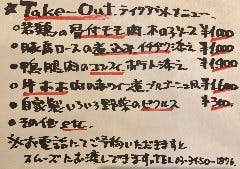 ★Take-Out テイクアウトメニュー
●若鶏の骨付モモ肉 木のコソース ¥1,000
●豚肩ロースの煮込み イチヂク添え ¥1,000
●鴨腿肉のコンフィ ポテト添え ¥1,000
●牛ホホ肉の赤ワイン煮 ブルゴーニュ風 ¥1,600
●自家製いろいろ野菜のピクルス ¥300
●その他 etc.
※お電話にてご予約いただきますと
スムーズにお渡しできます。TEL 03-3450-1896